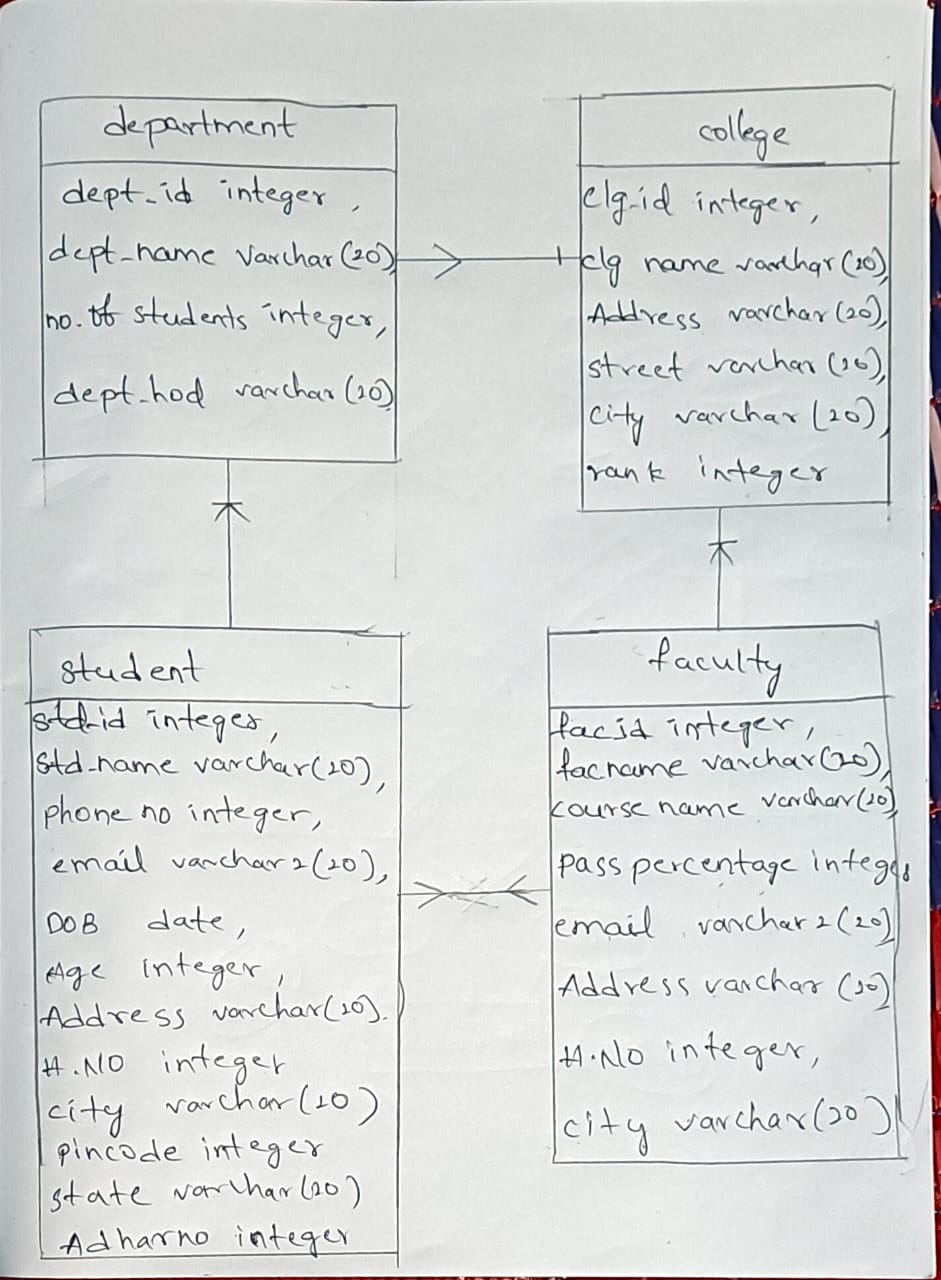 department
dept_id integer,
dept_name varchar(20)
no. of students integer,
dept_hod varchar(20)
college
clg_id integer,
clg name varchar(20),
Address varchar(20),
street varchar(20),
city varchar(20),
rank integer
student
std_id integer,
std_name varchar(20),
phone no integer,
email varchar2(20),
DOB date,
Age integer,
Address varchar(20).
H.NO integer
city varchar(20)
pincode integer
state varchar(20)
Adharno integer
faculty
facid integer,
facname varchar(20),
course name varchar(20)
pass percentage integer
email varchar2(20)
Address varchar(20)
H.No integer,
city varchar(20)